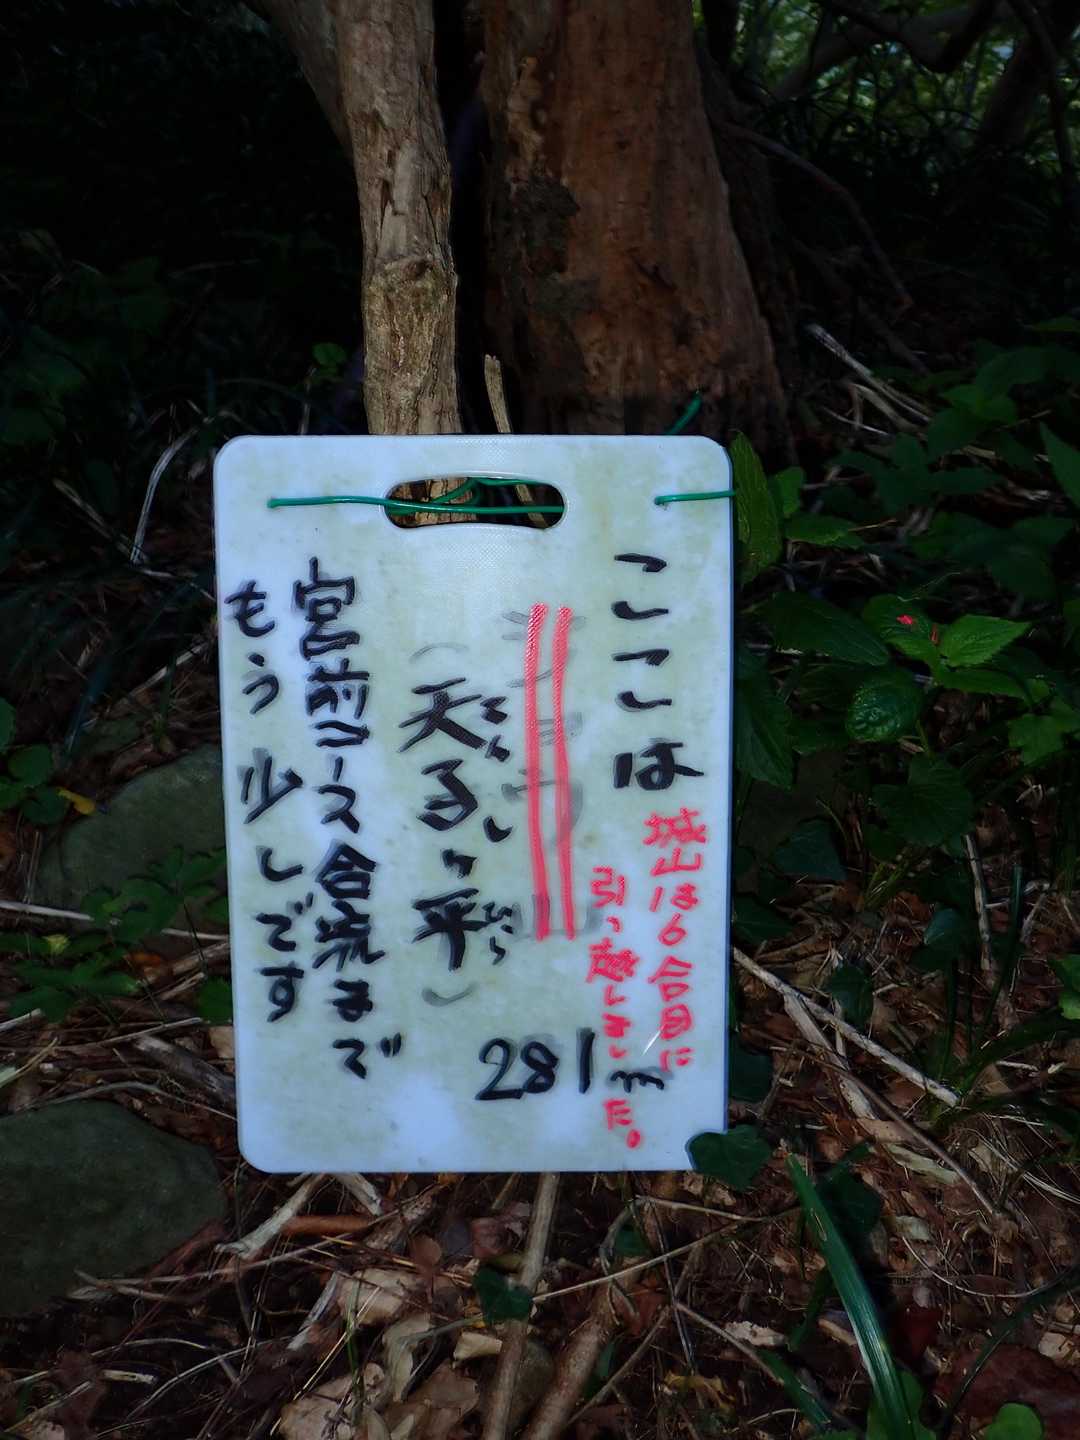 ここは
城山は6合目に
引っ越しました。
281m
(天子ヶ平)
てんしひら
宮前コース合流まで
もう少しです